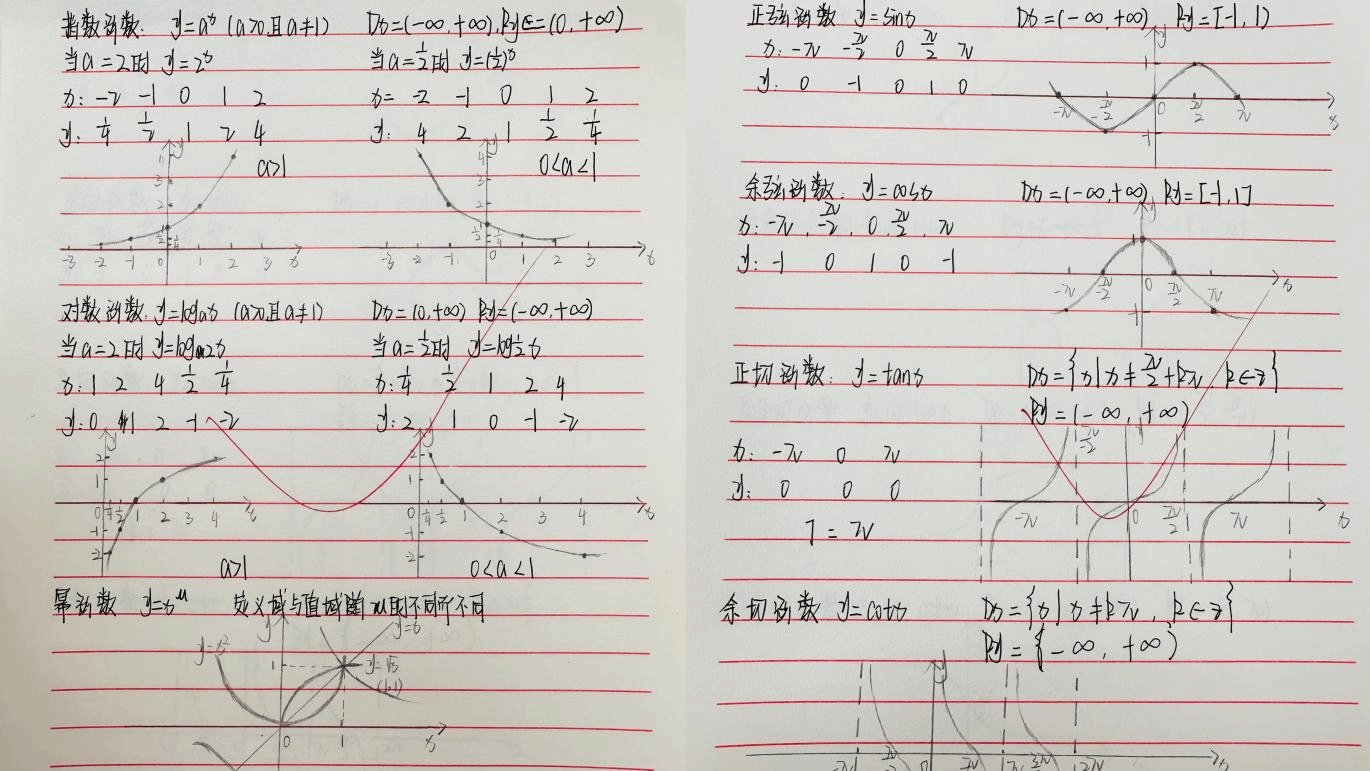 指数函数: y=aˣ (a>0且a≠1) Dx=(-∞,+∞), Ry∈=(0,+∞)
当a=2时 y=2ˣ 当a=1/2时 y=(1/2)ˣ
x: -2 -1 0 1 2 x= -2 -1 0 1 2
y: 1/4 1/2 1 2 4 y: 4 2 1 1/2 1/4
a>1 0<a<1
-3 -2 -1 0 1 2 3 x -3 -2 -1 0 1 2 3 x
对数函数: y=logax (a>0且a≠1) Dx=(0,+∞) Ry=(-∞,+∞)
当a=2时 y=log2x 当a=1/2时 y=log1/2x
x: 1 2 4 1/2 1/4 x: 1/4 1/2 1 2 4
y: 0 1 2 -1 -2 y: 2 1 0 -1 -2
0 1/4 1/2 1 2 3 4 x 0 1/4 1/2 1 2 3 4 x
a>1 0<a<1
幂函数 y=xᵘ 定义域与值域随u的不同而不同
y=x² y=x
y=√x
(1,1)
0 1 x
正弦函数 y=sinx Dx=(-∞,+∞) Ry=[-1,1)
x: -π -π/2 0 π/2 π
y: 0 -1 0 1 0
-π -π/2 0 π/2 π x
余弦函数: y=cosx Dx=(-∞,+∞) Ry=[-1,1]
x: -π, -π/2, 0, π/2, π
y: -1 0 1 0 -1
-π -π/2 0 π/2 π x
正切函数: y=tanx Dx={x|x≠π/2+kπ, k∈z}
Ry=(-∞,+∞)
x: -π 0 π
y: 0 0 0
-π -π/2 0 π/2 π x
T=π
余切函数 y=cotx Dx={x|x≠kπ, k∈z}
Ry={-∞,+∞)